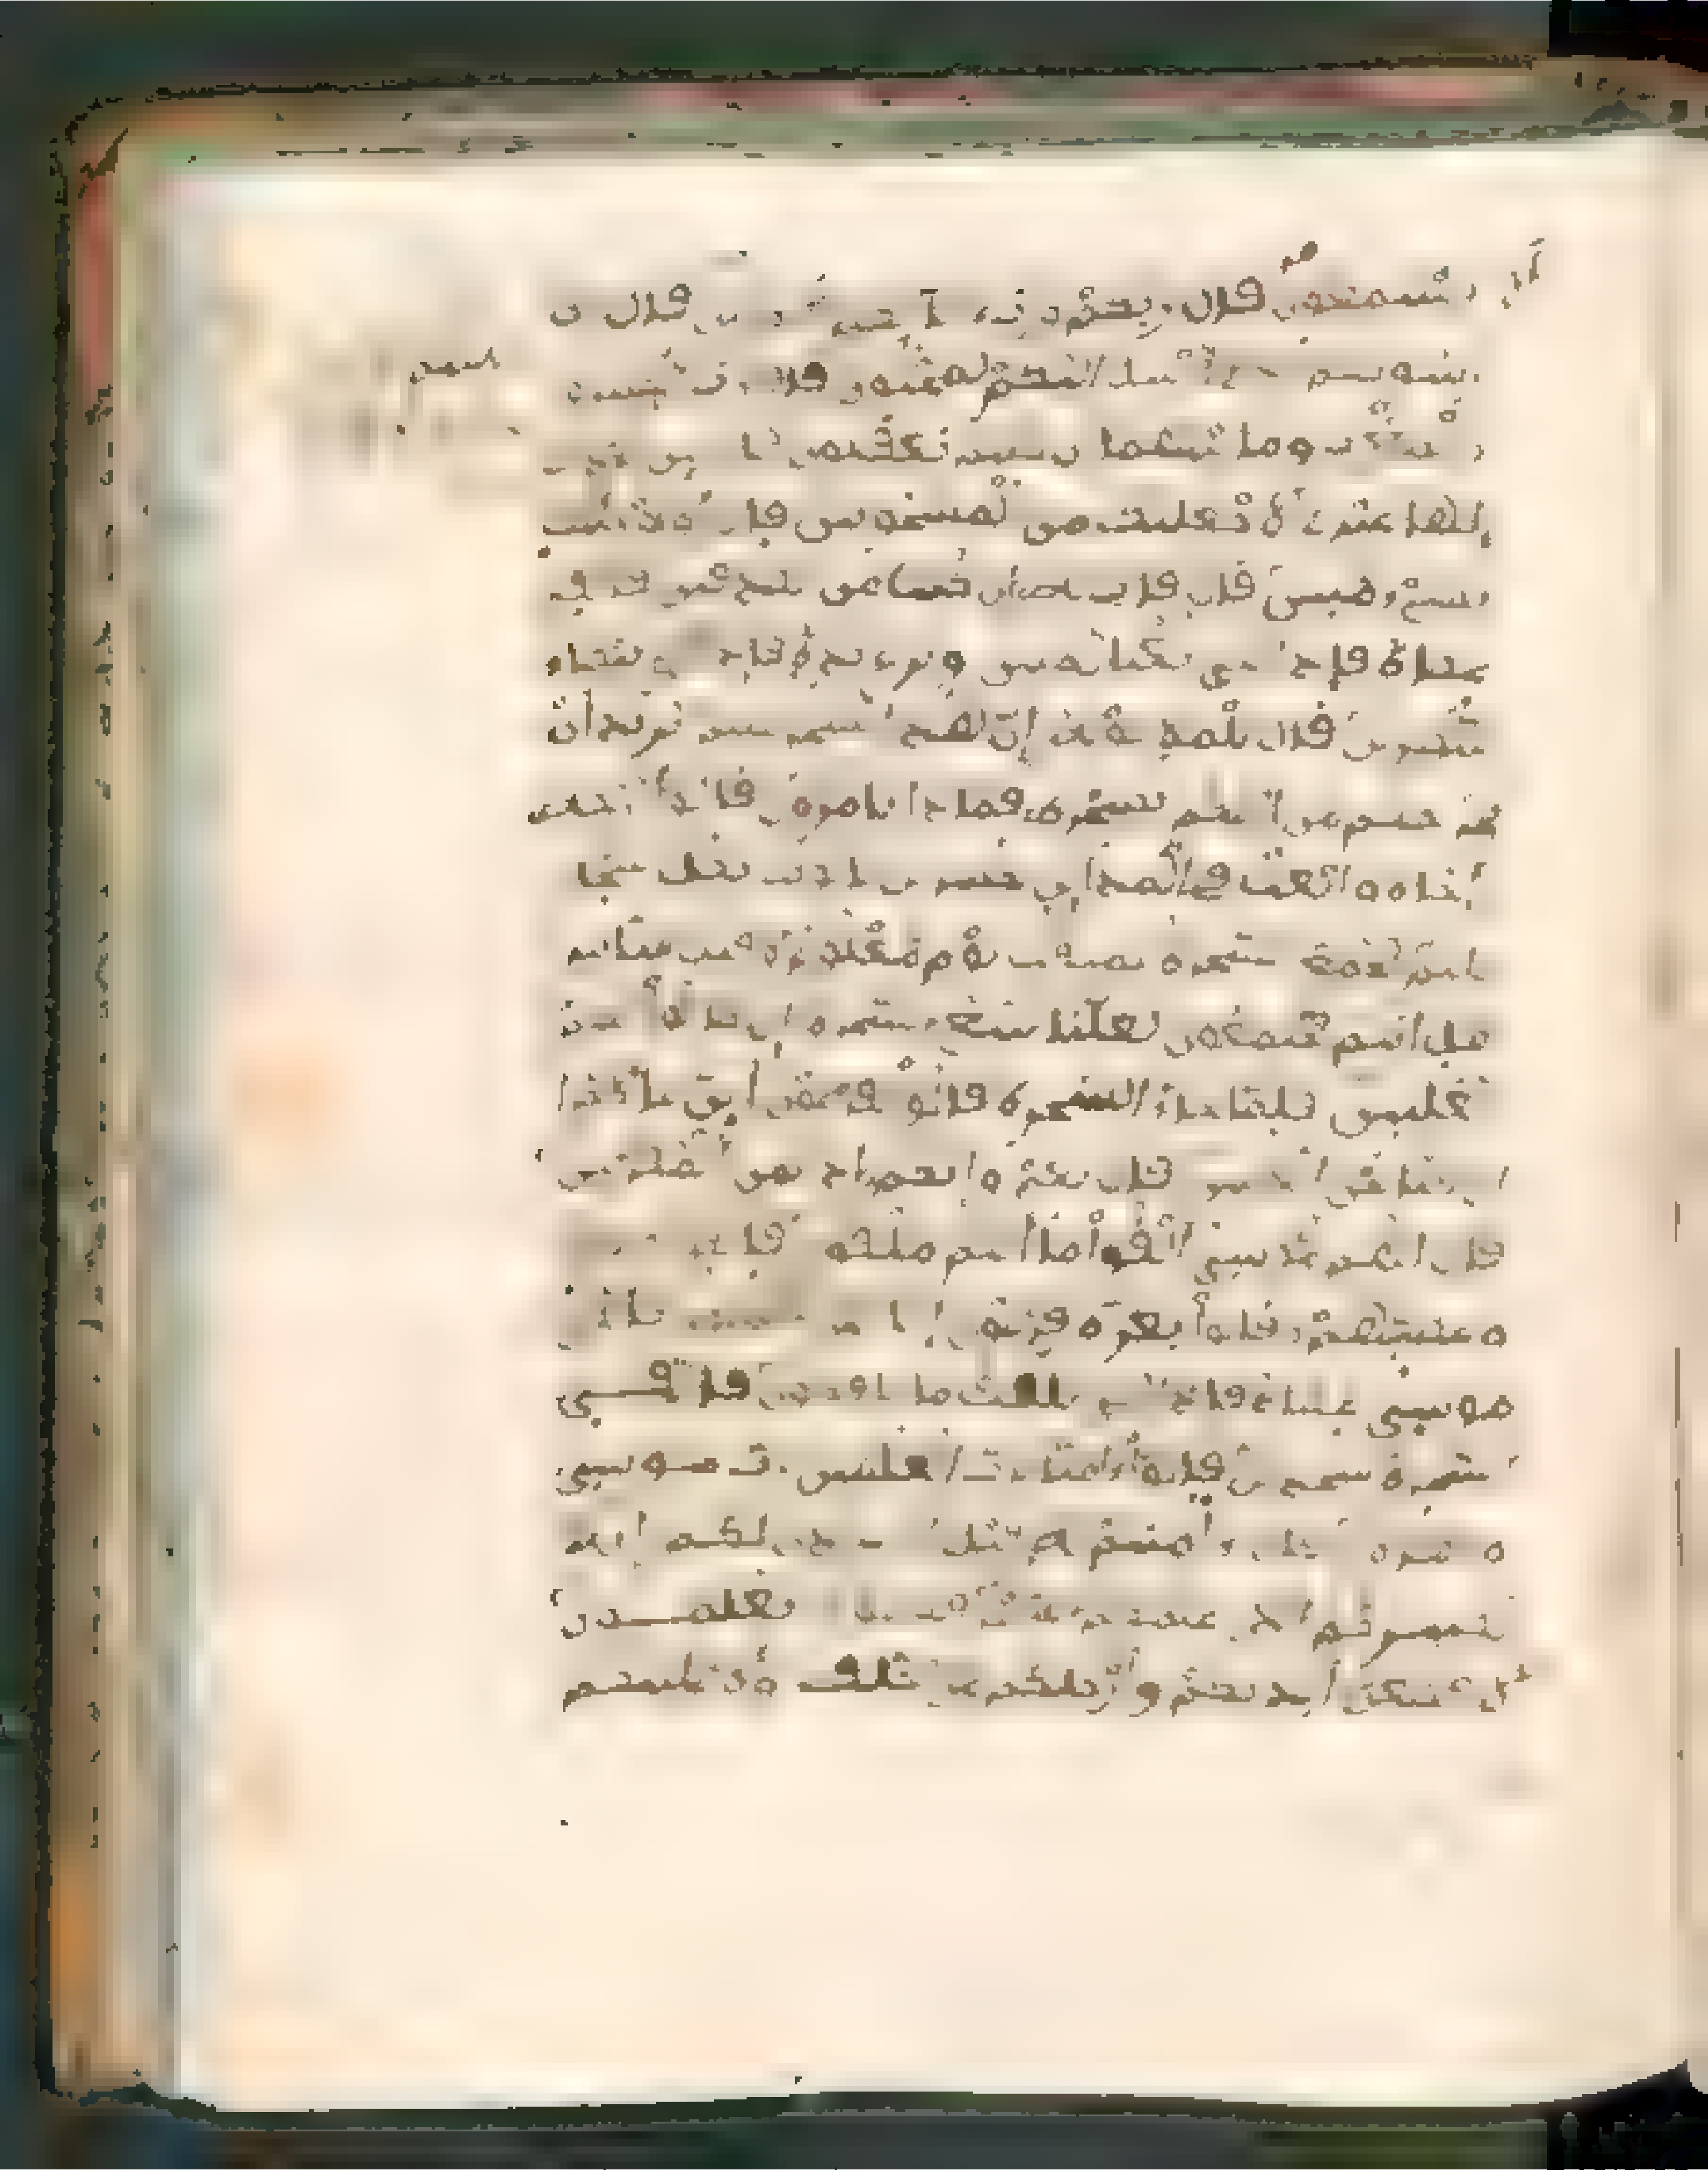 تستمعون قال ربكم ورب آبائكم الأولين قال إن
رسولكم الذي أرسل إليكم لمجنون قال رب المشرق
والمغرب وما بينهما إن كنتم تعقلون قال لئن اتخذت
إلها غيري لأجعلنك من المسجونين قال أولو جئتك
بشيء مبين قال فأت به إن كنت من الصدقين فألقى
عصاه فإذا هي ثعبان مبين ونزع يده فإذا هي بيضاء
للنظرين قال للملإ حوله إن هذا لسحر عليم يريد أن
يخرجكم من أرضكم بسحره فماذا تأمرون قالوا أرجه
وأخاه وابعث في المدائن حشرين يأتوك بكل سحار
عليم فجمع السحرة لميقات يوم معلوم وقيل للناس
هل أنتم مجتمعون لعلنا نتبع السحرة إن كانوا هم
الغلبين فلما جاء السحرة قالوا لفرعون أئن لنا لأجرا
إن كنا نحن الغلبين قال نعم وإنكم إذا لمن المقربين
قال لهم موسى ألقوا ما أنتم ملقون فألقوا حبالهم
وعصيهم وقالوا بعزة فرعون إنا لنحن الغلبون فألقى
موسى عصاه فإذا هي تلقف ما يأفكون فألقي
السحرة سجدين قالوا آمنا برب العلمين رب موسى
وهرون قال آمنتم له قبل أن آذن لكم إنه
لكبيركم الذي علمكم السحر فلسوف تعلمون
لأقطعن أيديكم وأرجلكم من خلف ولأصلبنكم